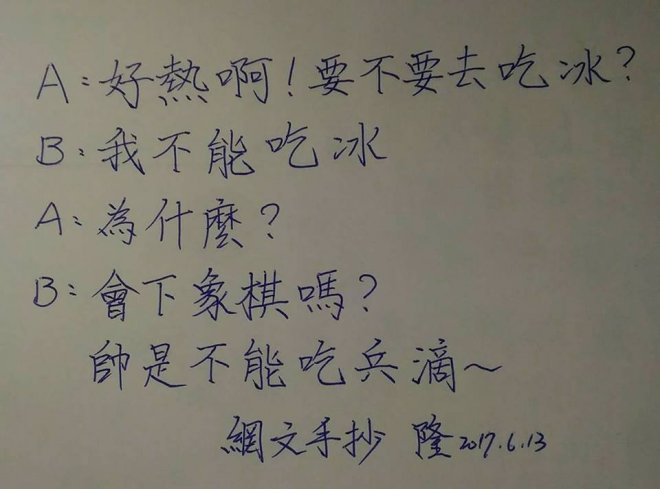 A:好熱啊!要不要去吃冰?
B:我不能吃冰
A:為什麼?
B:會下象棋嗎?
帥是不能吃兵滴～
網文手抄 隆2017.6.13